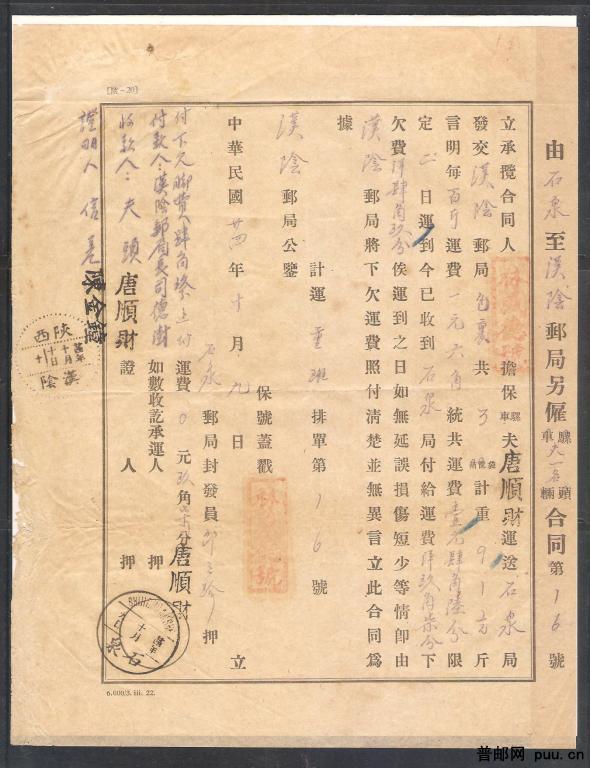 [陰–20]
由石泉至漢陰郵局另僱騾車夫一名頭輛合同第16號
立承攬合同人 擔保騾車夫唐順財運送石泉局
發交漢陰郵局包裹共3袋計重91斤
言明每百斤運費一元六角統共運費壹元肆角陸分限
定 日運到今已收到石泉局付給運費洋玖角柒分下
欠費洋肆角玖分俟運到之日如無延誤損傷短少等情卽由
漢陰郵局將下欠運費照付清楚並無異言立此合同爲
據
計運重班排單第16號
漢陰郵局公鑒
保號蓋戳
中華民國廿四年十月九日 立
石泉郵局封發員 押
運費0元玖角柒分唐順財
付下欠脚費洋肆角 上付
付款人:漢陰郵局長司德澍
如數收訖承運人 押
收款人:夫頭唐順財
證明人信差陳金鐘
證人 押
陝西
廿四年
十月
十
漢陰
SHIHCHUAN
廿四年
十月
石泉
6,600/3. iii. 22.
普邮网 puu.cn